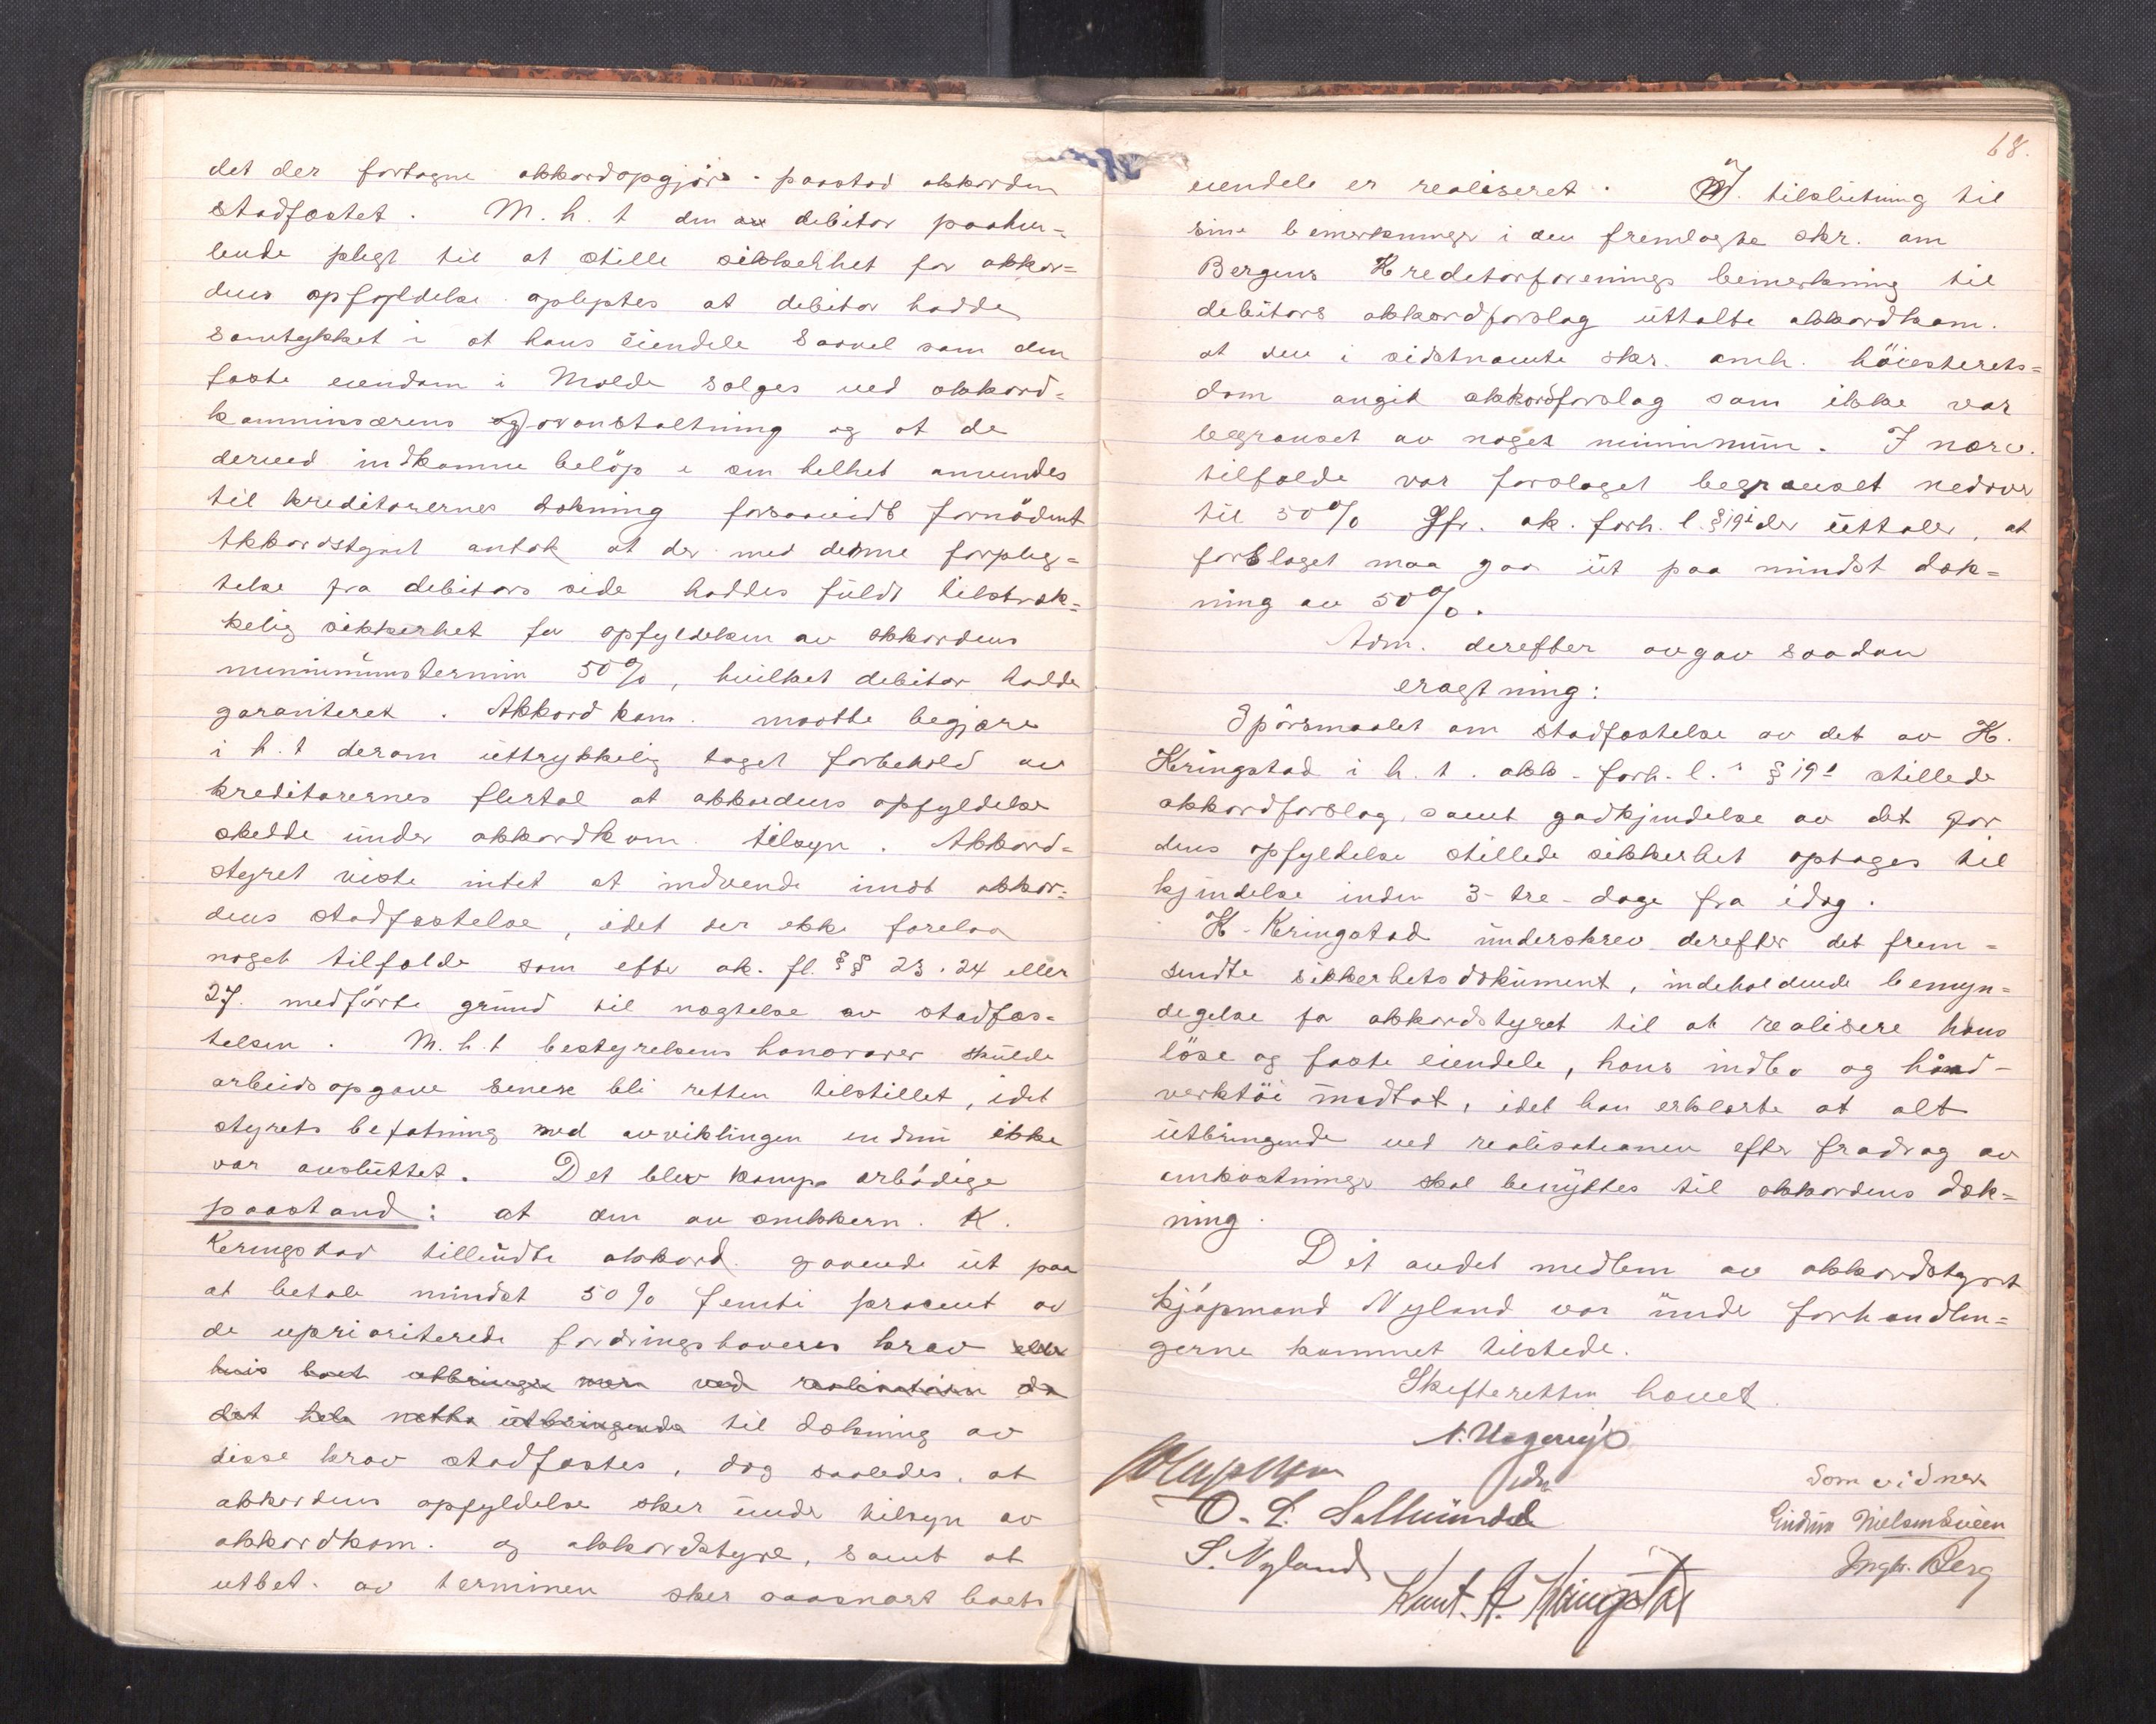 det der fortagne akkordopgjör paastod akkorden
stadfæstet. M.h.t den av debitor paahvi-
lende plegt til at stille sikkerhet for akkor=
dens opfyldelse oplystes at debitor hadde
samtykket i at hans eiendele saavel som den
faste eiendom i Molde sælges ved akkord-
kommissærens foranstaltning og at de
derved indkomne belöp i sin helhet anvendes
til kreditorernes dækning forsaavidt fornödent
Akkordstyret antok at der med denne forplig=
telse fra debitors side haddes fuldt tilstræk=
kelig sikkerhet for opfyldelsen av akkordens
minimumstermin 50%, hvilket debitor hadde
garanteret. Akkordkom. maatte begjære
i h.t derom uttrykkelig taget forbehold av
kreditorernes flertal at akkordens opfyldelse
skedde under akkordkom. tilsyn. Akkord=
styret viste intet at indvende imot akkor=
dens stadfæstelse, idet der ikke forelaa
noget tilfælde som efter ak. fl. §§ 23. 24 eller
27. medförte grund til nægtelse av stadfæs=
telsen. M.h.t bestyrelsens honorarer skulde
arbeidsopgave senere bli retten tilstillet, idet
styrets befatning med avviklingen endnu ikke
var avsluttet. Det blev komp. ærbödige
paastand: at den av snekkern. K.
Kringstad tilbudte akkord gaaende ut paa
at betale mindst 50% femti procent av
de uprioriterede fordringshaveres krav eller
hvis boet utbringer mere ved realisation da
det hele netto utbringende til dækning av
disse krav stadfæstes, dog saaledes, at
akkordens opfyldelse sker under tilsyn av
akkordkom. og akkordstyre, samt at
utbet. av terminen sker saasnart boets
68.
eiendele er realiseret. I tilslutning til
sine bemerkninger i den fremlagte skr. om
Bergens Kreditorforenings bemerkning til
debitors akkordforslag uttalte akkordkom.
at den i sidstnævnte skr. omh. höiesterets=
dom angik akkordforslag som ikke var
begrænset av noget minimum. I nærv.
tilfælde var forslaget begrænset nedover
til 50% Jfr. ak. forh. l. § 19 i der uttaler, at
forslaget maa gaa ut paa mindst dæk=
ning av 50%.
Adm. derefter avgav saadan
eragtning:
Spörsmaalet om stadfæstelse av det av K.
Kringstad i h.t. akk. forh. l. s § 19 1 stillede
akkordforslag samt godkjendelse av det for
dens opfyldelse stillede sikkerhet optages til
kjendelse inden 3- tre - dage fra idag.
K. Kringstad underskrev derefter det frem=
sendte sikkerhetsdokument, indeholdende bemyn=
digelse for akkordstyret til at realisere hans
löse og faste eiendele, hans indbo og haand-
verktöi undtat, idet han erklærte at alt
utbringende ved realisationen efter fradrag av
omkostninger skal benyttes til akkordens dæk=
ning.
Det andet medlem av akkordstyret
kjöpmand Nyland var under forhandlin=
gerne kommet tilstede.
Skifteretten hævet.
Som vidner
O. L. Sallmundal
S. Nyland
Knut. A. Kringstad
Gudrun Nielsen
Ingbr. Berg